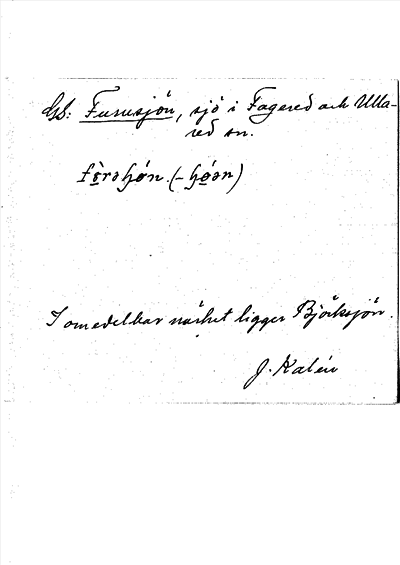 GS: Furusjön, sjö i Fagered och Ulla-
red sn.
I omedelbar närhet ligger Björksjön.
J. Kalén